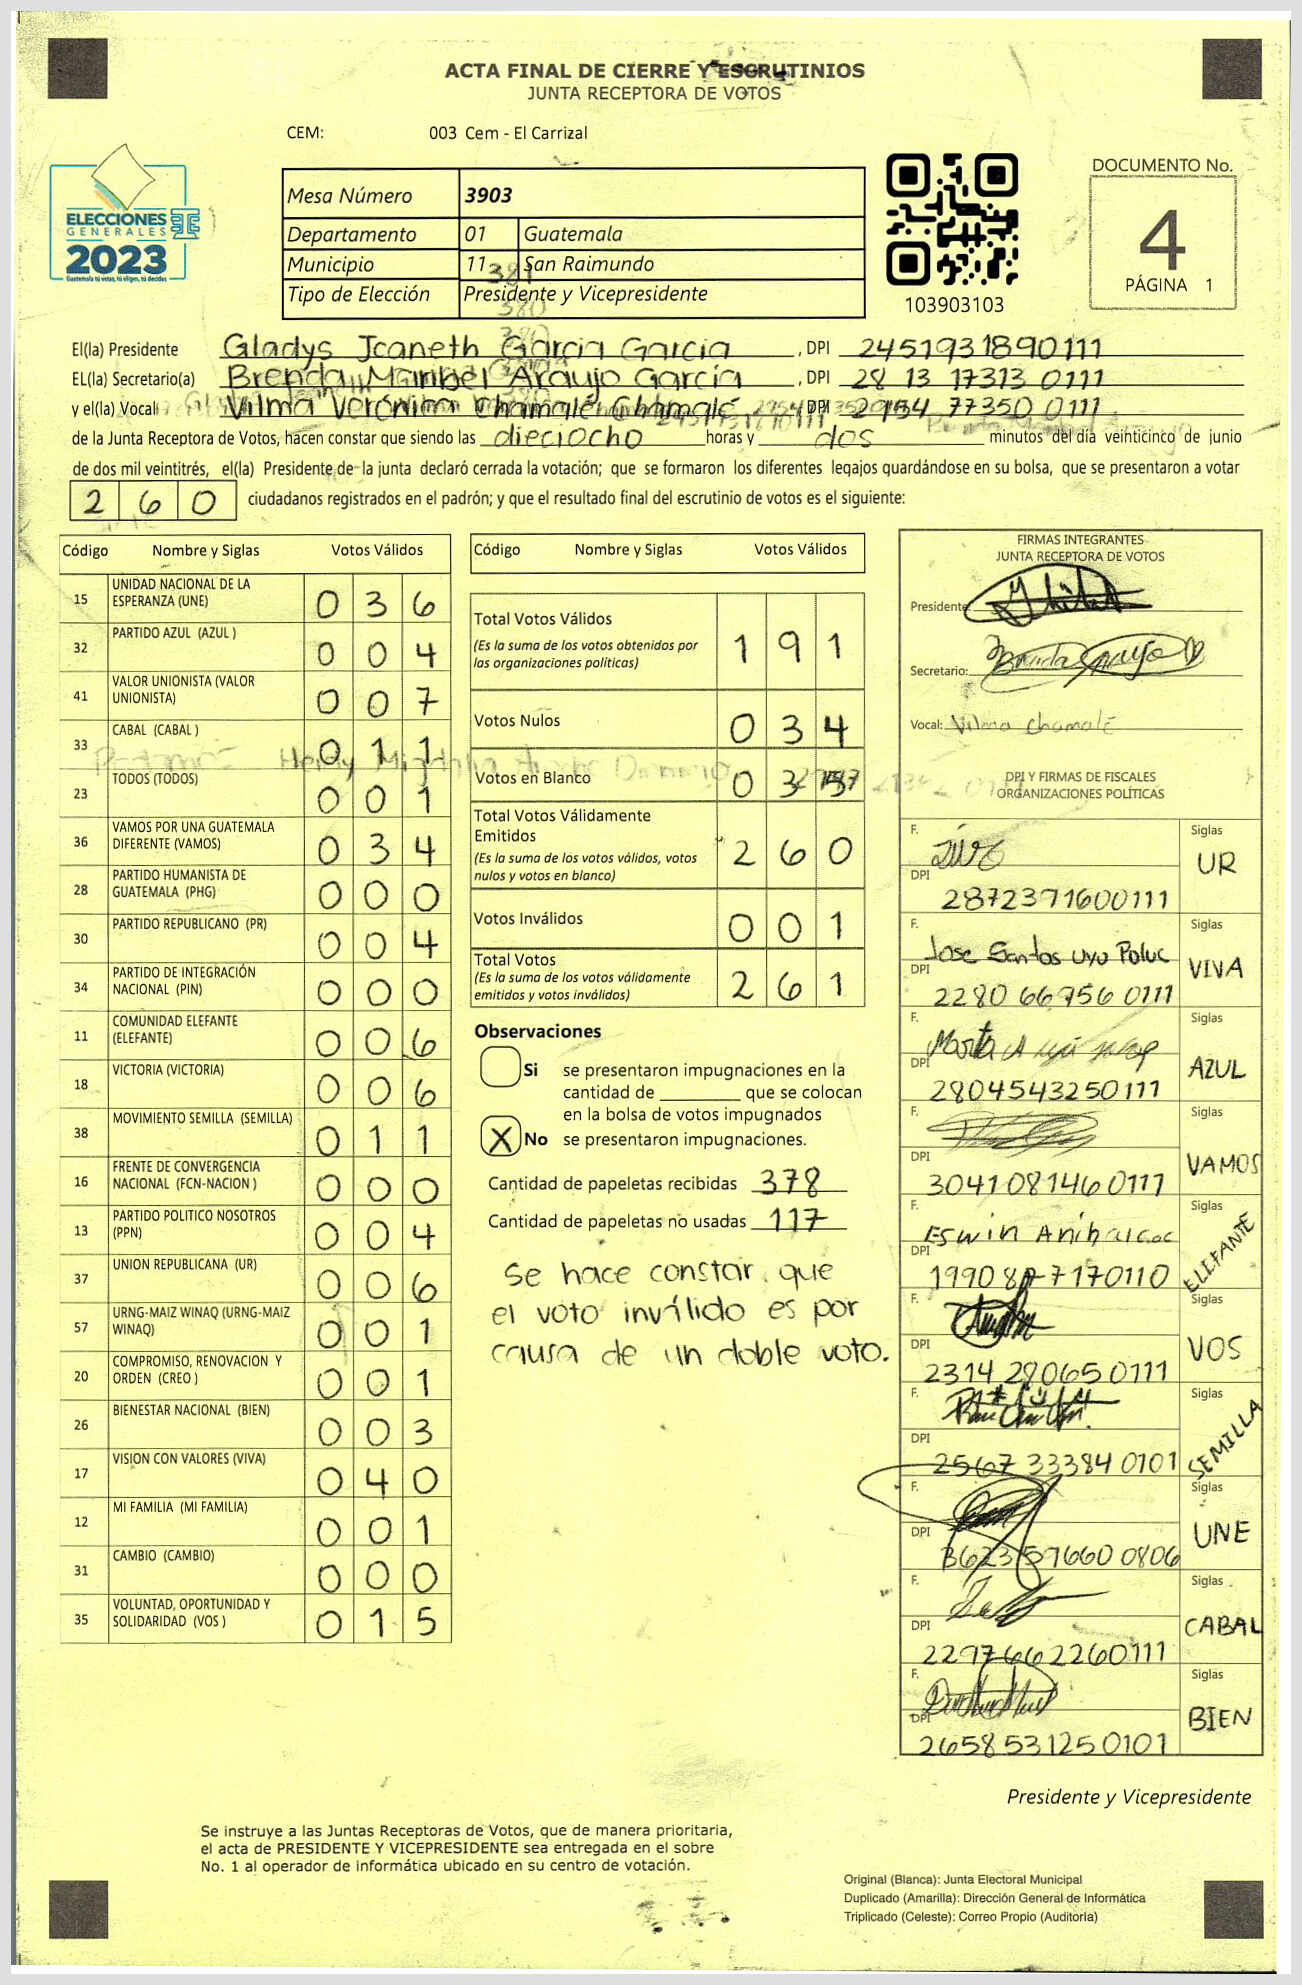 ACTA FINAL DE CIERRE Y ESCRUTINIOS
JUNTA RECEPTORA DE VOTOS
CEM: 003 Cem - El Carrizal
ELECCIONES
GENERALES
2023
Guatemala tú votas, tú eliges, tú decides
Mesa Número 3903
Departamento 01 Guatemala
Municipio 11 San Raimundo
Tipo de Elección Presidente y Vicepresidente
103903103
DOCUMENTO No.
4
PÁGINA 1
El(la) Presidente Gladys Jeaneth Garcia Garcia , DPI 2451931890111
EL(la) Secretario(a) Brenda Maribel Araujo García , DPI 28 13 17313 0111
y el(la) Vocal Vilma Verónica Chamalé Chamalé , DPI 2954 77350 0111
de la Junta Receptora de Votos, hacen constar que siendo las dieciocho horas y dos minutos del día veinticinco de junio
de dos mil veintitrés, el(la) Presidente de la junta declaró cerrada la votación; que se formaron los diferentes legajos guardándose en su bolsa, que se presentaron a votar
260 ciudadanos registrados en el padrón; y que el resultado final del escrutinio de votos es el siguiente:
Código Nombre y Siglas Votos Válidos
15 UNIDAD NACIONAL DE LA ESPERANZA (UNE) 0 3 6
32 PARTIDO AZUL (AZUL ) 0 0 4
41 VALOR UNIONISTA (VALOR UNIONISTA) 0 0 7
33 CABAL (CABAL ) 0 1 1
23 TODOS (TODOS) 0 0 1
36 VAMOS POR UNA GUATEMALA DIFERENTE (VAMOS) 0 3 4
28 PARTIDO HUMANISTA DE GUATEMALA (PHG) 0 0 0
30 PARTIDO REPUBLICANO (PR) 0 0 4
34 PARTIDO DE INTEGRACIÓN NACIONAL (PIN) 0 0 0
11 COMUNIDAD ELEFANTE (ELEFANTE) 0 0 6
18 VICTORIA (VICTORIA) 0 0 6
38 MOVIMIENTO SEMILLA (SEMILLA) 0 1 1
16 FRENTE DE CONVERGENCIA NACIONAL (FCN-NACION ) 0 0 0
13 PARTIDO POLITICO NOSOTROS (PPN) 0 0 4
37 UNION REPUBLICANA (UR) 0 0 6
57 URNG-MAIZ WINAQ (URNG-MAIZ WINAQ) 0 0 1
20 COMPROMISO, RENOVACION Y ORDEN (CREO ) 0 0 1
26 BIENESTAR NACIONAL (BIEN) 0 0 3
17 VISION CON VALORES (VIVA) 0 4 0
12 MI FAMILIA (MI FAMILIA) 0 0 1
31 CAMBIO (CAMBIO) 0 0 0
35 VOLUNTAD, OPORTUNIDAD Y SOLIDARIDAD (VOS ) 0 1 5
Código Nombre y Siglas Votos Válidos
Total Votos Válidos 1 9 1
(Es la suma de los votos obtenidos por
las organizaciones políticas)
Votos Nulos 0 3 4
Votos en Blanco 0 3
Total Votos Válidamente
Emitidos 2 6 0
(Es la suma de los votos válidos, votos
nulos y votos en blanco)
Votos Inválidos 0 0 1
Total Votos 2 6 1
(Es la suma de los votos válidamente
emitidos y votos inválidos)
Observaciones
Si se presentaron impugnaciones en la
cantidad de ________ que se colocan
en la bolsa de votos impugnados
X No se presentaron impugnaciones.
Cantidad de papeletas recibidas 378
Cantidad de papeletas no usadas 117
Se hace constar que
el voto inválido es por
causa de un doble voto.
FIRMAS INTEGRANTES
JUNTA RECEPTORA DE VOTOS
Presidente:
Secretario:
Vocal: Vilma Chamalé
DPI Y FIRMAS DE FISCALES
ORGANIZACIONES POLÍTICAS
F. Siglas
UR
DPI 2872371600111
F. Jose Santos Uyu Siglas
VIVA
DPI 2280 66756 0111
F. Marta Siglas
AZUL
DPI 2804543250111
F. Siglas
VAMOS
DPI 3041081460111
F. Eswin Siglas
ELEFANTE
DPI
F. Siglas
VOS
DPI 2314 28065 0111
F. Siglas
SEMILLA
DPI 2567 33384 0101
F. Siglas
UNE
DPI
F. Siglas
CABAL
DPI 2297662260111
F. Siglas
BIEN
DPI 2658531250101
Presidente y Vicepresidente
Se instruye a las Juntas Receptoras de Votos, que de manera prioritaria,
el acta de PRESIDENTE Y VICEPRESIDENTE sea entregada en el sobre
No. 1 al operador de informática ubicado en su centro de votación.
Original (Blanca): Junta Electoral Municipal
Duplicado (Amarilla): Dirección General de Informática
Triplicado (Celeste): Correo Propio (Auditoria)